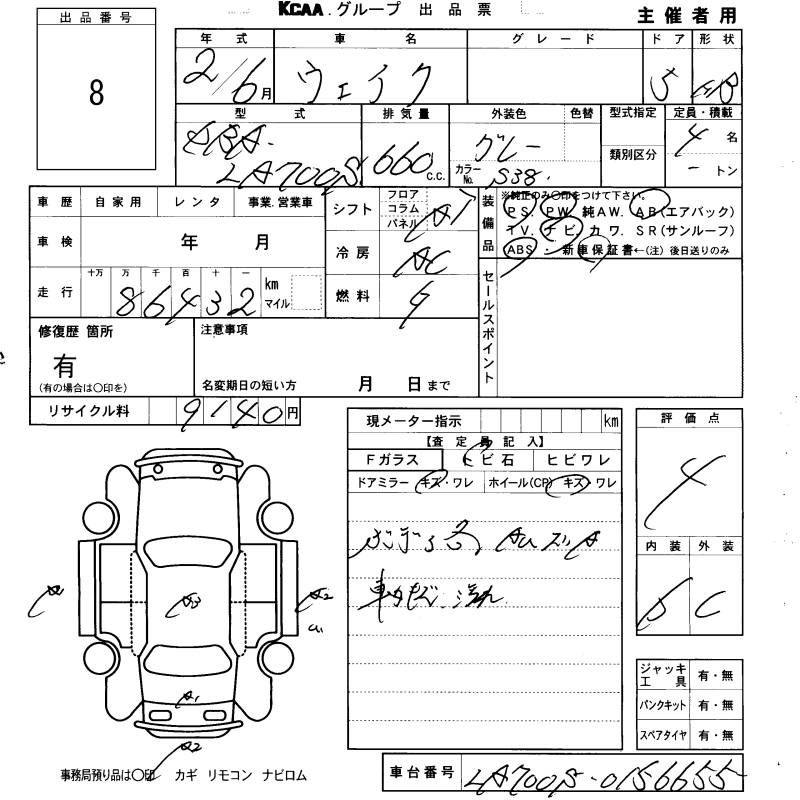 KCAA.グループ 出品票
主催者用
出品番号
8
年式 車名 グレード ドア 形状
2/6月 ウェイク 5 HB
型式 排気量 外装色 色替 型式指定 定員・積載
DBA-
LA700S 660 C.C. グレー カラーNo. S38 類別区分 4名
-トン
車歴 自家用 レンタ 事業.営業車
シフト フロア コラム パネル AT
装備品 ※純正のみ〇印をつけて下さい。
PS. PW. 純AW. AB(エアバック)
TV. ナビ. カワ. SR(サンルーフ)
ABS ・ 新車保証書←(注)後日送りのみ
車検 年 月
冷房 AC
走行 十万 万 千 百 十 一
86432 km マイル
燃料
セールスポイント
修復歴 箇所
有
(有の場合は〇印を)
注意事項
名変期日の短い方 月 日まで
リサイクル料 9140円
現メーター指示 km
【査定員記入】
Fガラス トビ石 ヒビワレ
ドアミラー キズ・ワレ ホイール(CP) キズ・ワレ
評価点
4
内装 外装
C
A A3 A2
A1
A2
ジャッキ工具 有・無
パンクキット 有・無
スペアタイヤ 有・無
事務局預り品は〇印 カギ リモコン ナビロム
車台番号 LA700S-0156655